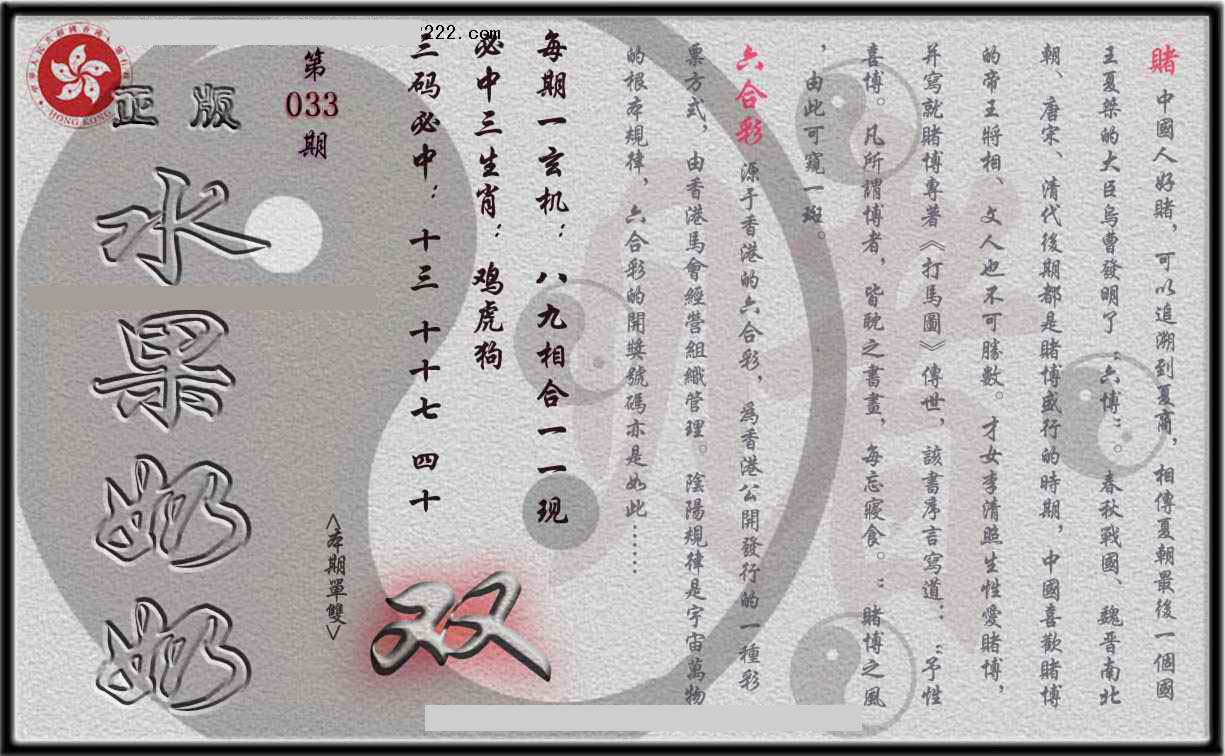 賭 中國人好賭，可以追溯到夏商，相傳夏朝最後一個國
王夏桀的大臣烏曹發明了“六博”。春秋戰國、魏晋南北
朝、唐宋、清代後期都是賭博盛行的時期，中國喜歡賭博
的帝王將相、文人也不可勝數。才女李清照生性愛賭博，
并寫就賭博專著《打馬圖》傳世，該書序言寫道：“予性
喜博。凡所謂博者，皆耽之書畫，每忘寢食。”賭博之風
，由此可窺一斑。
六合彩 源于香港的六合彩，為香港公開發行的一種彩
票方式，由香港馬會經營組織管理。陰陽規律是宇宙萬物
的根本規律，六合彩的開獎號碼亦是如此……
每期一玄机：八九相合一一现
必中三生肖：鸡虎狗
三码必中：十三 十十七 四十
222.com
第
033
期
<本期單雙>
双
正版
水果奶奶
HONG KONG